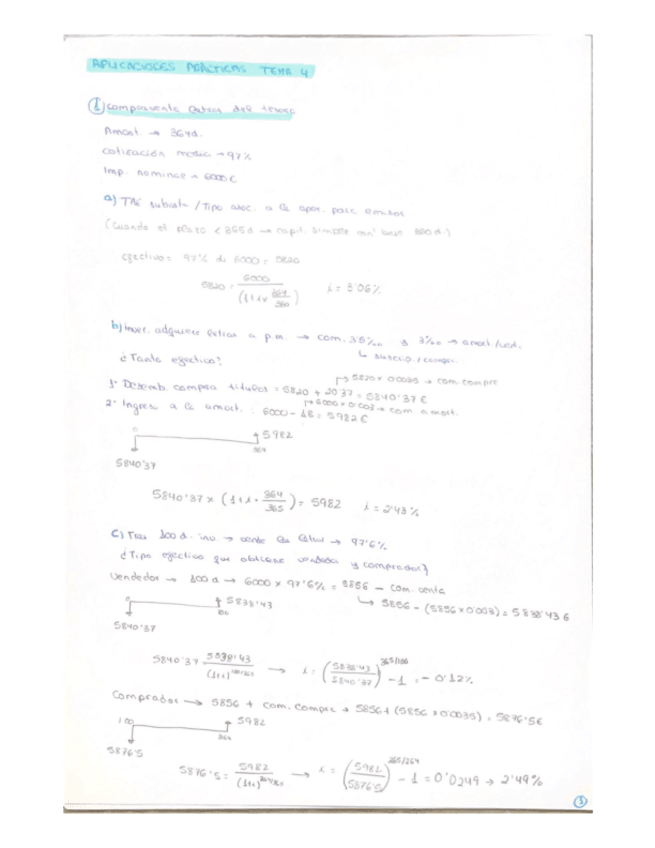 APLICACIONES PRÁCTICAS TEMA 4
① compraventa letras del tesoro
Amort. → 364d.
cotización media → 97%
Imp. nominal → 6000€
a) TAE subasta / Tipo asoc. a la oper. para emisor
(Cuando el plazo < 365d → capit. simple con base 360 d.)
efectivo = 97% de 6000 = 5820
5820 = 6000 / (1+i× 364/360) i = 3'06%
b) Inver. adquiere letras a p.m. → com. 3'5‰ y 3‰ → amort/ved.
↳ suscrip./compr.
¿Tanto efectivo?
↱ 5820 × 0'0035 → com. compra
1º Desemb. compra títulos = 5820 + 20'37 = 5840'37 €
↱ 6000 × 0'003 → com. amort.
2º Ingres. a la amort. : 6000 - 18 = 5982 €
0 5982
364
5840'37
5840'37 × (1+i· 364/365) = 5982 i = 2'43%
C) Tras 100 d. inv. → vende las letras → 97'6%
¿Tipo efectivo que obtiene vendedor y comprador?
Vendedor → 100 d → 6000 × 97'6% = 5856 - com. venta
↳ 5856 - (5856 × 0'003) = 5838'43 €
0 5838'43
100
5840'37
5840'37 5838'43 / (1+i)^100/365 → i = (5838'43 / 5840'37)^365/100 - 1 = - 0'12%
Comprador → 5856 + com. compra → 5856 + (5856 × 0'0035) = 5876'5€
100 5982
364
5876'5
5876'5 = 5982 / (1+i)^264/365 → i = (5982 / 5876'5)^365/264 - 1 = 0'0249 → 2'49%